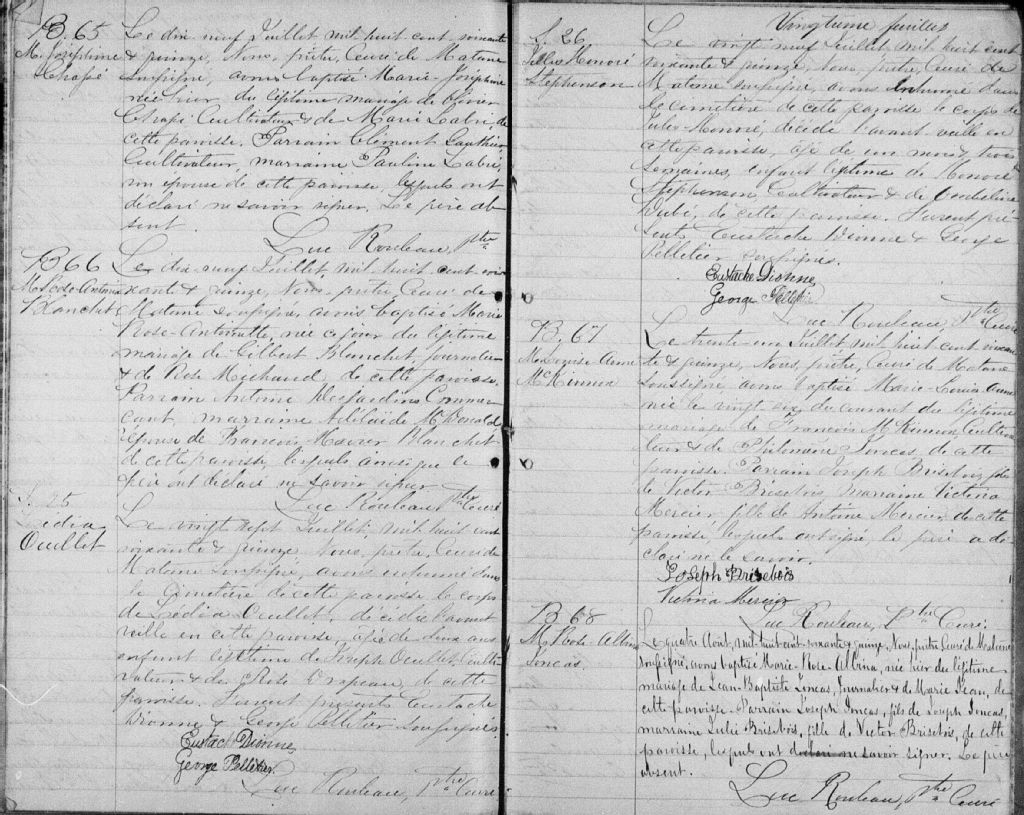 B. 65
M. Joséphine
Chassé
Le dix neuf Juillet mil huit cent soixante
& quinze, Nous, prêtre, Curé de Matane
soussigné, avons baptisé Marie-Joséphine
née hier du légitime mariage de Olivier
Chassé Cultivateur & de Marie Labrie, de
cette paroisse. Parrain Clément Gauthier
Cultivateur, marraine Pauline Labrie,
son épouse de cette paroisse, lesquels ont
déclaré ne savoir signer. Le père ab
sent.
Luc Rouleau, Ptre
B 66
M. Rose-Antoinette
Blanchet
Le dix neuf Juillet, mil huit cent soi
xante & quinze, Nous, prêtre, Curé de
Matane soussigné, avons baptisé Marie
Rose-Antoinette, née ce jour du légitime
mariage de Gilbert Blanchet, journalier
& de Rose Michaud de cette paroisse.
Parrain Antoine Desjardins Commer
çant, marraine Adélaïde McDonald
épouse de François Blanchet
de cette paroisse, lesquels ainsi que le
père ont déclaré ne savoir signer.
Luc Rouleau Ptre Curé
S. 25
Lédia
Ouellet
Le vingt sept Juillet, mil huit cent
soixante & quinze, Nous, prêtre, Curé de
Matane soussigné, avons inhumé dans
le Cimetière de cette paroisse le corps
de Lédia Ouellet, décédée l'avant
veille en cette paroisse, agée de deux ans
enfant légitime de Joseph Ouellet, Culti
vateur & de Rose Drapeau, de cette
paroisse. Furent présents Eustache
Dionne & George Pelletier soussignés
Eustach Dionne
George Pelletier
Luc Rouleau, Ptre Curé
Vingtième feuillet
S. 26
Jules Honoré
Stephenson
Le vingt neuf Juillet mil huit cent
soixante & quinze, Nous prêtre, Curé de
Matane soussigné, avons inhumé dans
le cimetière de cette paroisse le corps de
Jules-Honoré, décédé l'avant-veille en
cette paroisse, agé de un mois & trois
semaines, enfant légitime de Honoré
Stephenson Cultivateur & de
Dubé, de cette paroisse. Furent pré
sents Eustache Dionne & George
Pelletier soussignés.
Eustache Dionne
George Pelletier
Luc Rouleau, Ptre Curé
B. 67
M. Louise Anne
McKinnon
Le trente-un Juillet mil huit cent soixan
te & quinze, Nous, prêtre, Curé de Matane
soussigné, avons baptisé Marie-Louise Anne
née le vingt six du courant du légitime
mariage de François McKinnon Cultiva
teur & de Philomène Joncas, de cette
paroisse. Parrain Joseph Brisebois fils
de Victor Brisebois, marraine Victoria
Mercier fille de Antoine Mercier, de cette
paroisse, lesquels ont signé, le père a dé
claré ne le savoir.
Joseph Brisebois
Victoria Mercier
Luc Rouleau, Ptre Curé.
B 68
M. Rose Albina
Joncas.
Le quatre Août, mil-huit cent-soixante & quinze, Nous, prêtre Curé de Matane
soussigné, avons baptisé Marie-Rose-Albina, née hier du légitime
mariage de Jean Baptiste Joncas, Journalier & de Marie Jean, de
cette paroisse. Parrain Joseph Joncas, fils de Joseph Joncas,
marraine Julie Brisebois, fille de Victor Brisebois, de cette
paroisse, lesquels ont déclaré ne savoir signer. Le père
absent.
Luc Rouleau, Ptre Curé